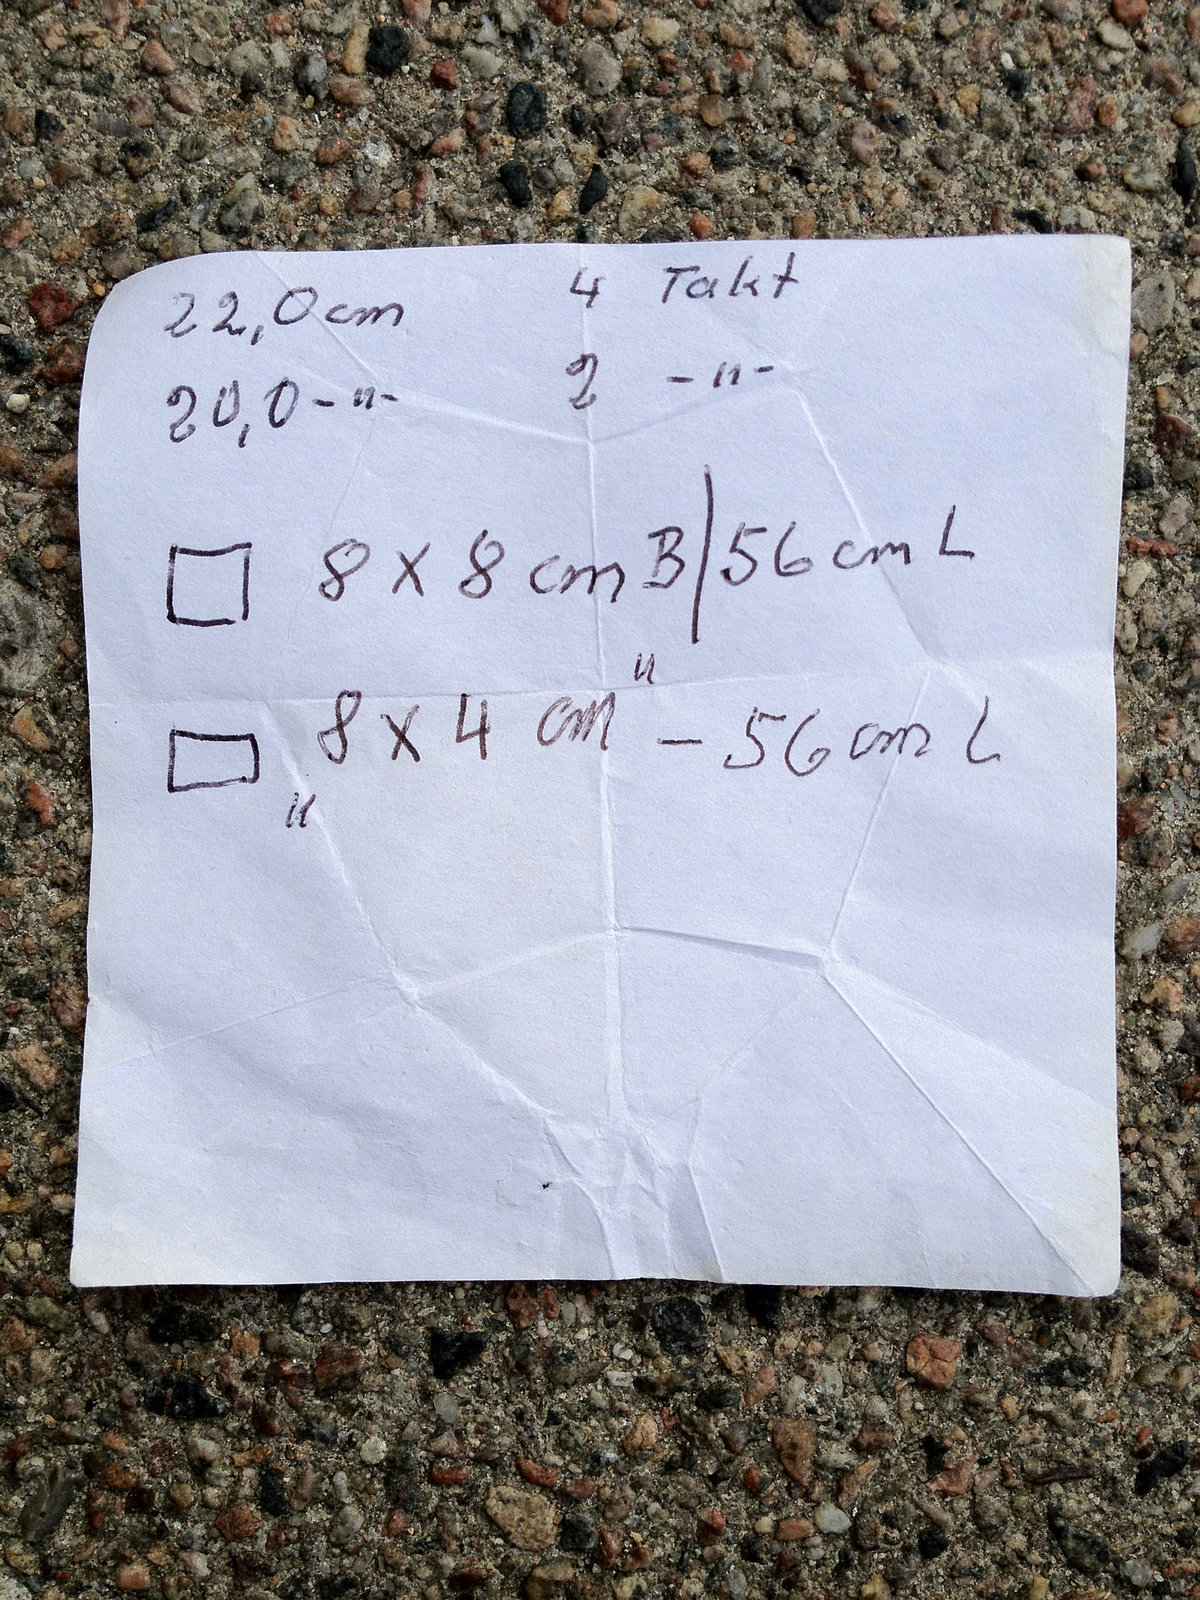 22,0 cm 4 Takt
20,0 -"- 2 -"-
8 x 8 cm B | 56 cm L
"
8 x 4 cm - 56 cm L
"